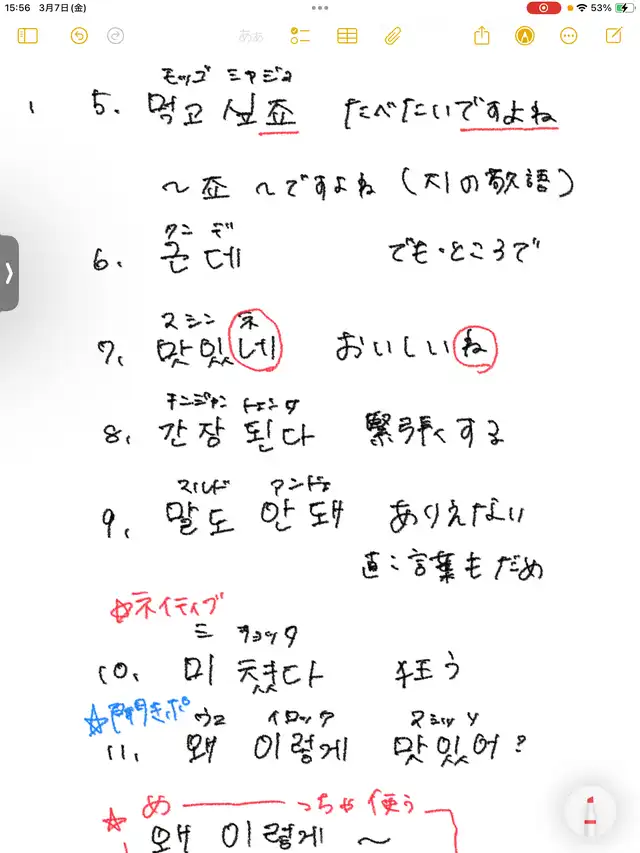 15:56 3月7日(金)
53%
ああ
モッゴ シャジヨ
5. 먹고 싶죠 たべたいですよね
〜죠 〜ですよね (지の敬語)
クンデ
6. 근데 でも・ところで
マシンネ
7. 맛있네 おいしいね
キンジャン トェンタ
8. 간장 된다 緊張する
マルド アンドェ
9. 말도 안 돼 ありえない
直: 言葉もだめ
☆ネイティブ
ミ チョッタ
10. 미쳤다 狂う
☆聞きポ
ウェ イロッケ マシッソ
11. 왜 이렇게 맛있어?
☆ め──っちゃ使う
왜 이렇게 〜